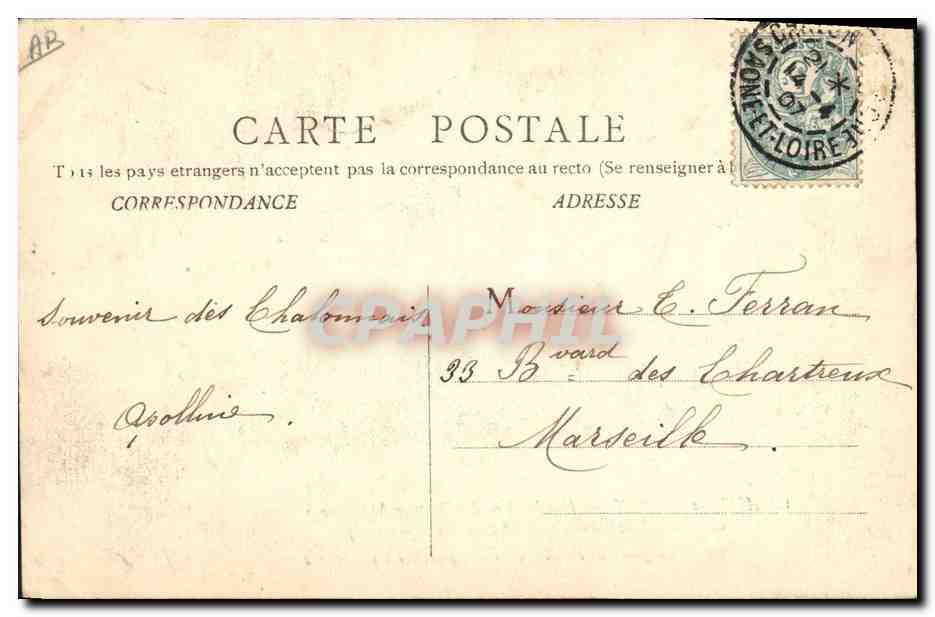 AB
CARTE POSTALE
Tous les pays etrangers n'acceptent pas la correspondance au recto (Se renseigner à l
CORRESPONDANCE
ADRESSE
SAONE-ET-LOIRE
Souvenir des Chalonnais
Apolline.
Monsieur E. Ferran
33 Bvard des Chartreux
Marseille.
CPAPHIL